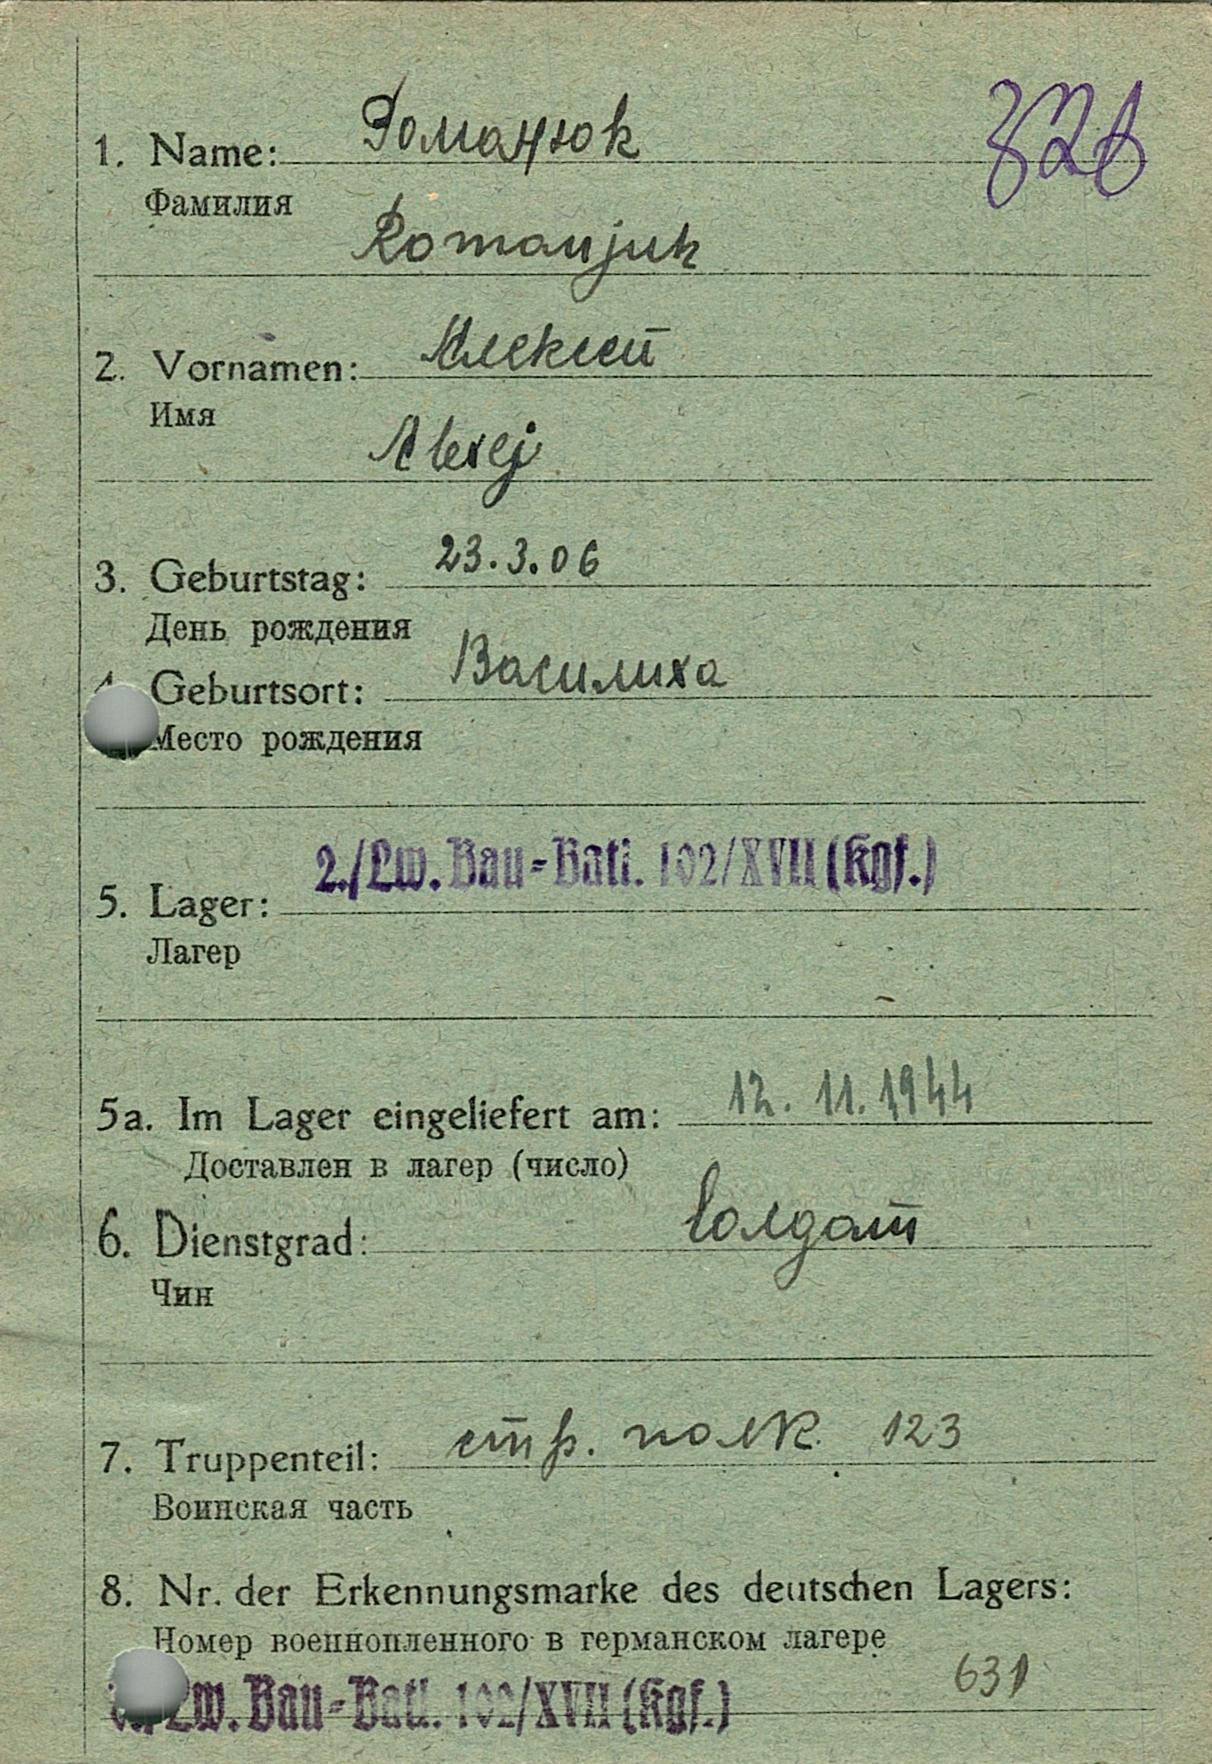 328
1. Name: Романюк
Фамилия
Romanjuk
2. Vornamen: Алексей
Имя
Alexej
3. Geburtstag: 23.3.06
День рождения
4. Geburtsort: Василиха
Место рождения
5. Lager: 2./Lw. Bau-Batl. 102/XVII (Kgf.)
Лагер
5a. Im Lager eingeliefert am: 12. 11. 1944
Доставлен в лагер (число)
6. Dienstgrad: Солдат
Чин
7. Truppenteil: стр. полк 123
Воинская часть
8. Nr. der Erkennungsmarke des deutschen Lagers:
Номер военнопленного в германском лагере
Lw. Bau-Batl. 102/XVII (Kgf.) 631